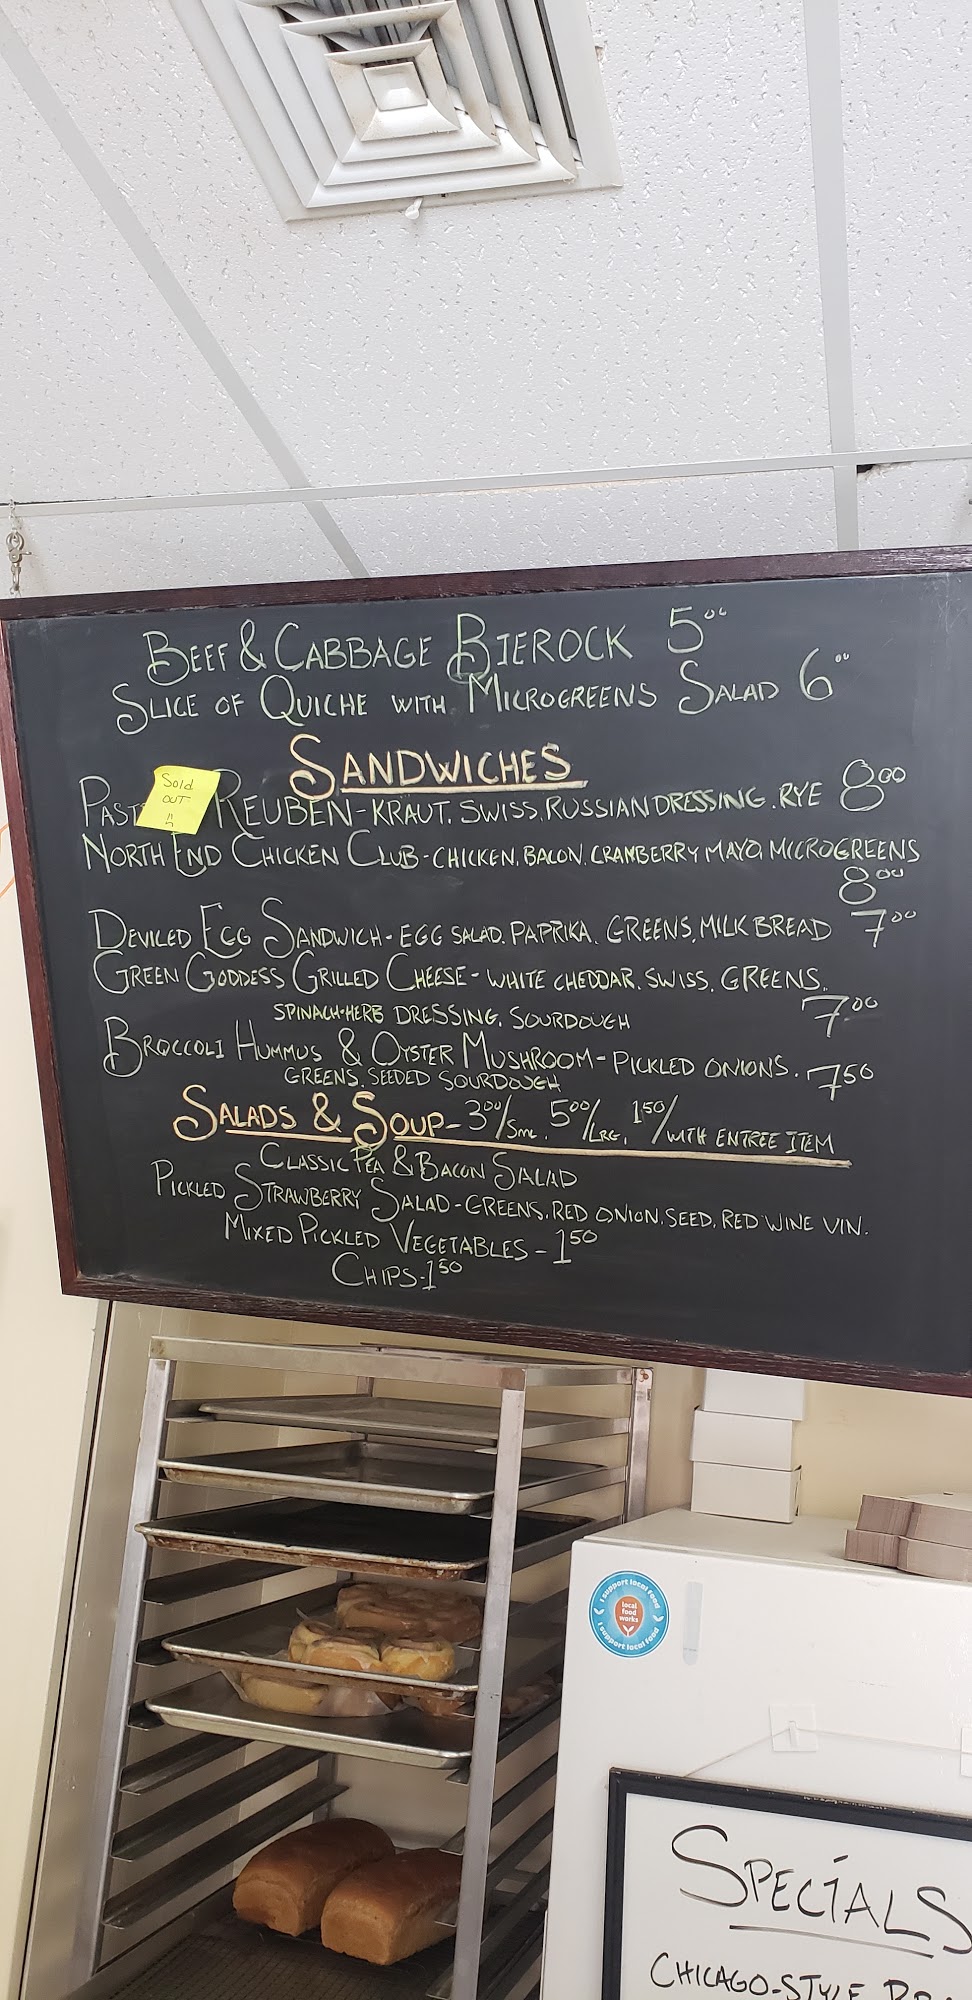 BEEF & CABBAGE BIEROCK 5⁰⁰
SLICE OF QUICHE WITH MICROGREENS SALAD 6⁰⁰
SANDWICHES
Sold
OUT
REUBEN-KRAUT. SWISS. RUSSIAN DRESSING. RYE 8⁰⁰
NORTH END CHICKEN CLUB-CHICKEN, BACON, CRANBERRY MAYO, MICROGREENS
8⁰⁰
DEVILED EGG SANDWICH-EGG SALAD. PAPRIKA. GREENS. MILK BREAD 7⁰⁰
GREEN GODDESS GRILLED CHEESE- WHITE CHEDDAR. SWISS. GREENS.
SPINACH-HERB DRESSING. SOURDOUGH 7⁰⁰
BROCCOLI HUMMUS & OYSTER MUSHROOM-PICKLED ONIONS.
GREENS. SEEDED SOURDOUGH 7⁵⁰
SALADS & SOUP- 3⁰⁰/SML. 5⁰⁰/LRG. 1⁵⁰/WITH ENTREE ITEM
CLASSIC PEA & BACON SALAD
PICKLED STRAWBERRY SALAD-GREENS. RED ONION. SEED. RED WINE VIN.
MIXED PICKLED VEGETABLES-1⁵⁰
CHIPS-1⁵⁰
I support local food
local
food
works
I support local food
SPECIALS
CHICAGO-STYLE